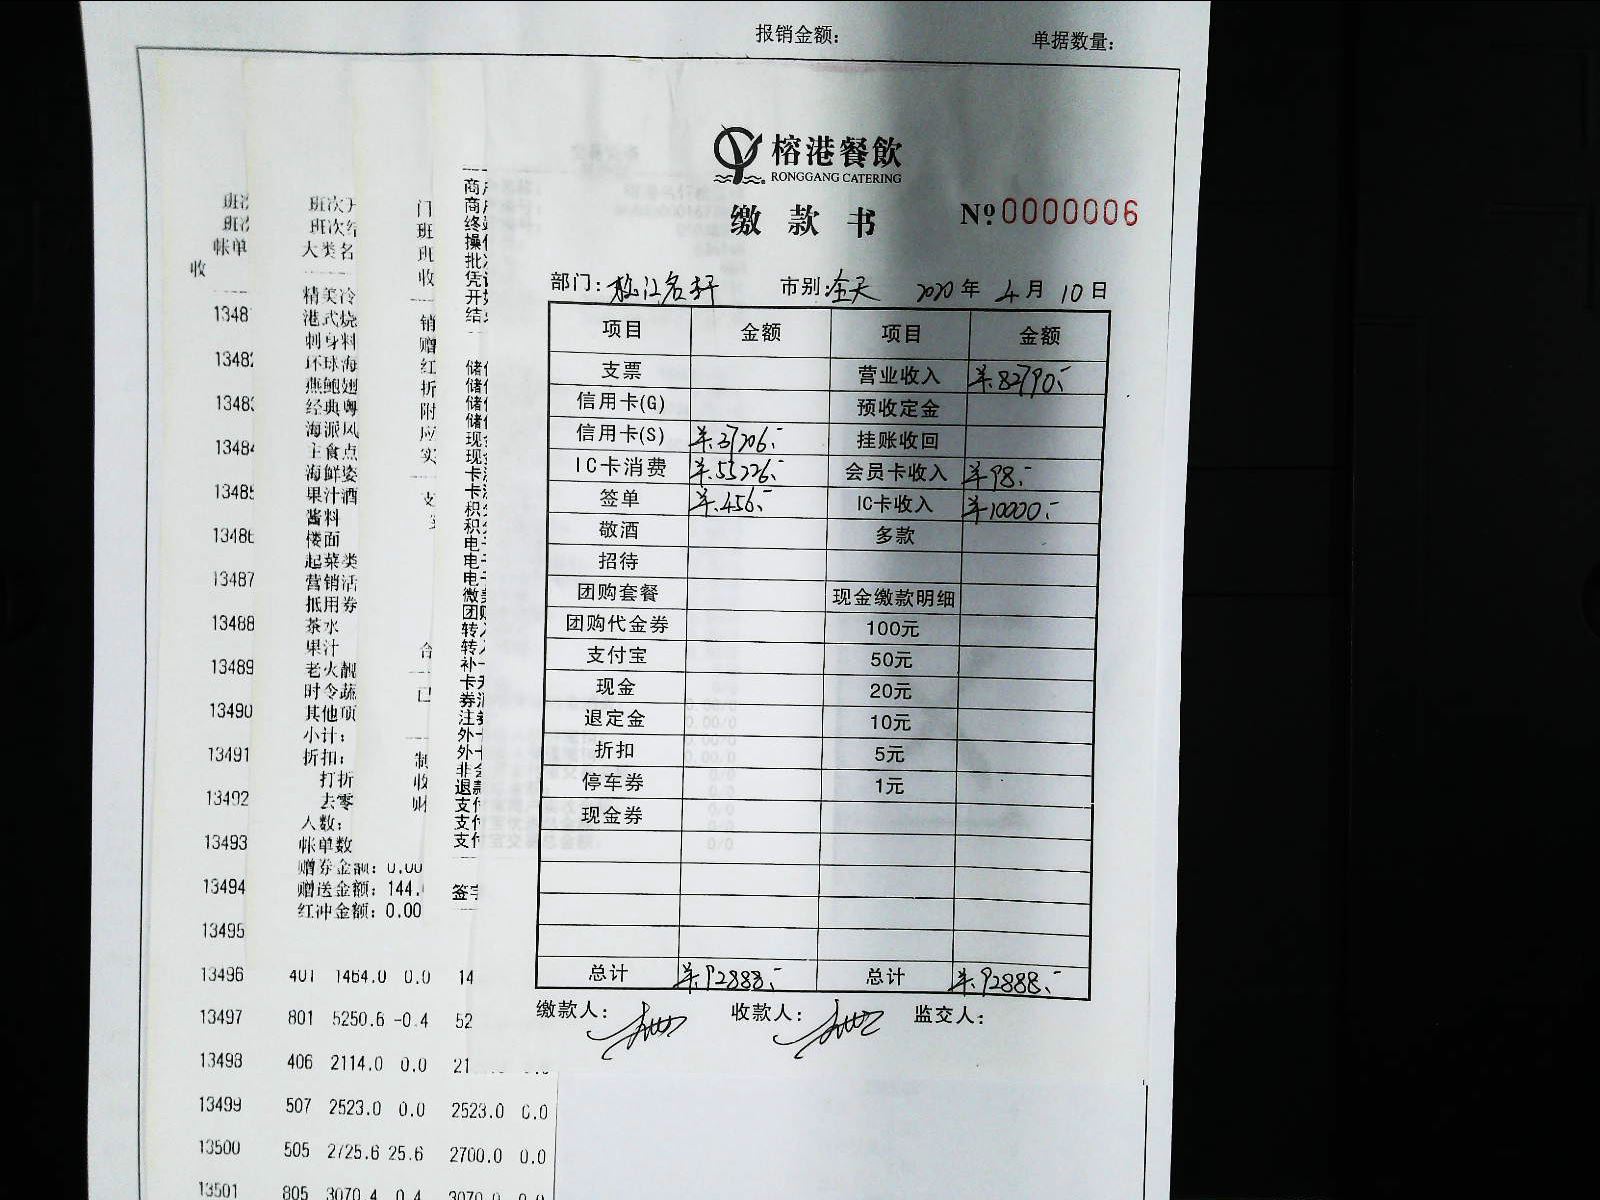 报销金额：	单据数量：
榕港餐飲
RONGGANG CATERING
缴款书	№0000006
部门：松江名轩	市别：全天	2020年4月10日
项目	金额	项目	金额
支票		营业收入	¥82790.-
信用卡(G)		预收定金
信用卡(S)	¥37206.-	挂账收回
IC卡消费	¥55226.-	会员卡收入	¥98.-
签单	¥456.-	IC卡收入	¥10000.-
敬酒		多款
招待
团购套餐		现金缴款明细
团购代金券		100元
支付宝		50元
现金		20元
退定金		10元
折扣		5元
停车券		1元
现金券
总计	¥92888.-	总计	¥92888.-
缴款人：	收款人：	监交人：
班
班
帐单
收
1348
1348
1348
1348
1348
1348
13487
13488
13489
13490
13491
13492
13493
13494
13495
13496
13497
13498
13499
13500
13501
班次
班次
大类名
精美冷
港式烧
刺身料
环球海
燕鲍翅
经典粤
海派风
主食点
海鲜姿
果汁酒
酱料
楼面
起菜类
营销活
抵用券
茶水
果汁
老火靓
时令蔬
其他项
小计：
折扣：
打折
去零
人数：
帐单数
赠券金额：0.00
赠送金额：144.
红冲金额：0.00
401 1464.0 0.0 14
801 5250.6 -0.4 52
406 2114.0 0.0 21
507 2523.0 0.0 2523.0 0.0
505 2725.6 25.6 2700.0 0.0
805 3070.4 0.4 3070.0 0.0
门
班
班
收
销
赠
红
折
附
应
实
支
合
已
制
收
财
商
商
终
操
批
凭
开
结
储
储
储
储
现
现
卡
卡
积
积
电
电
电
微
团
转
转
补
卡
券
注
外
外
非
退
支
支
支
签字